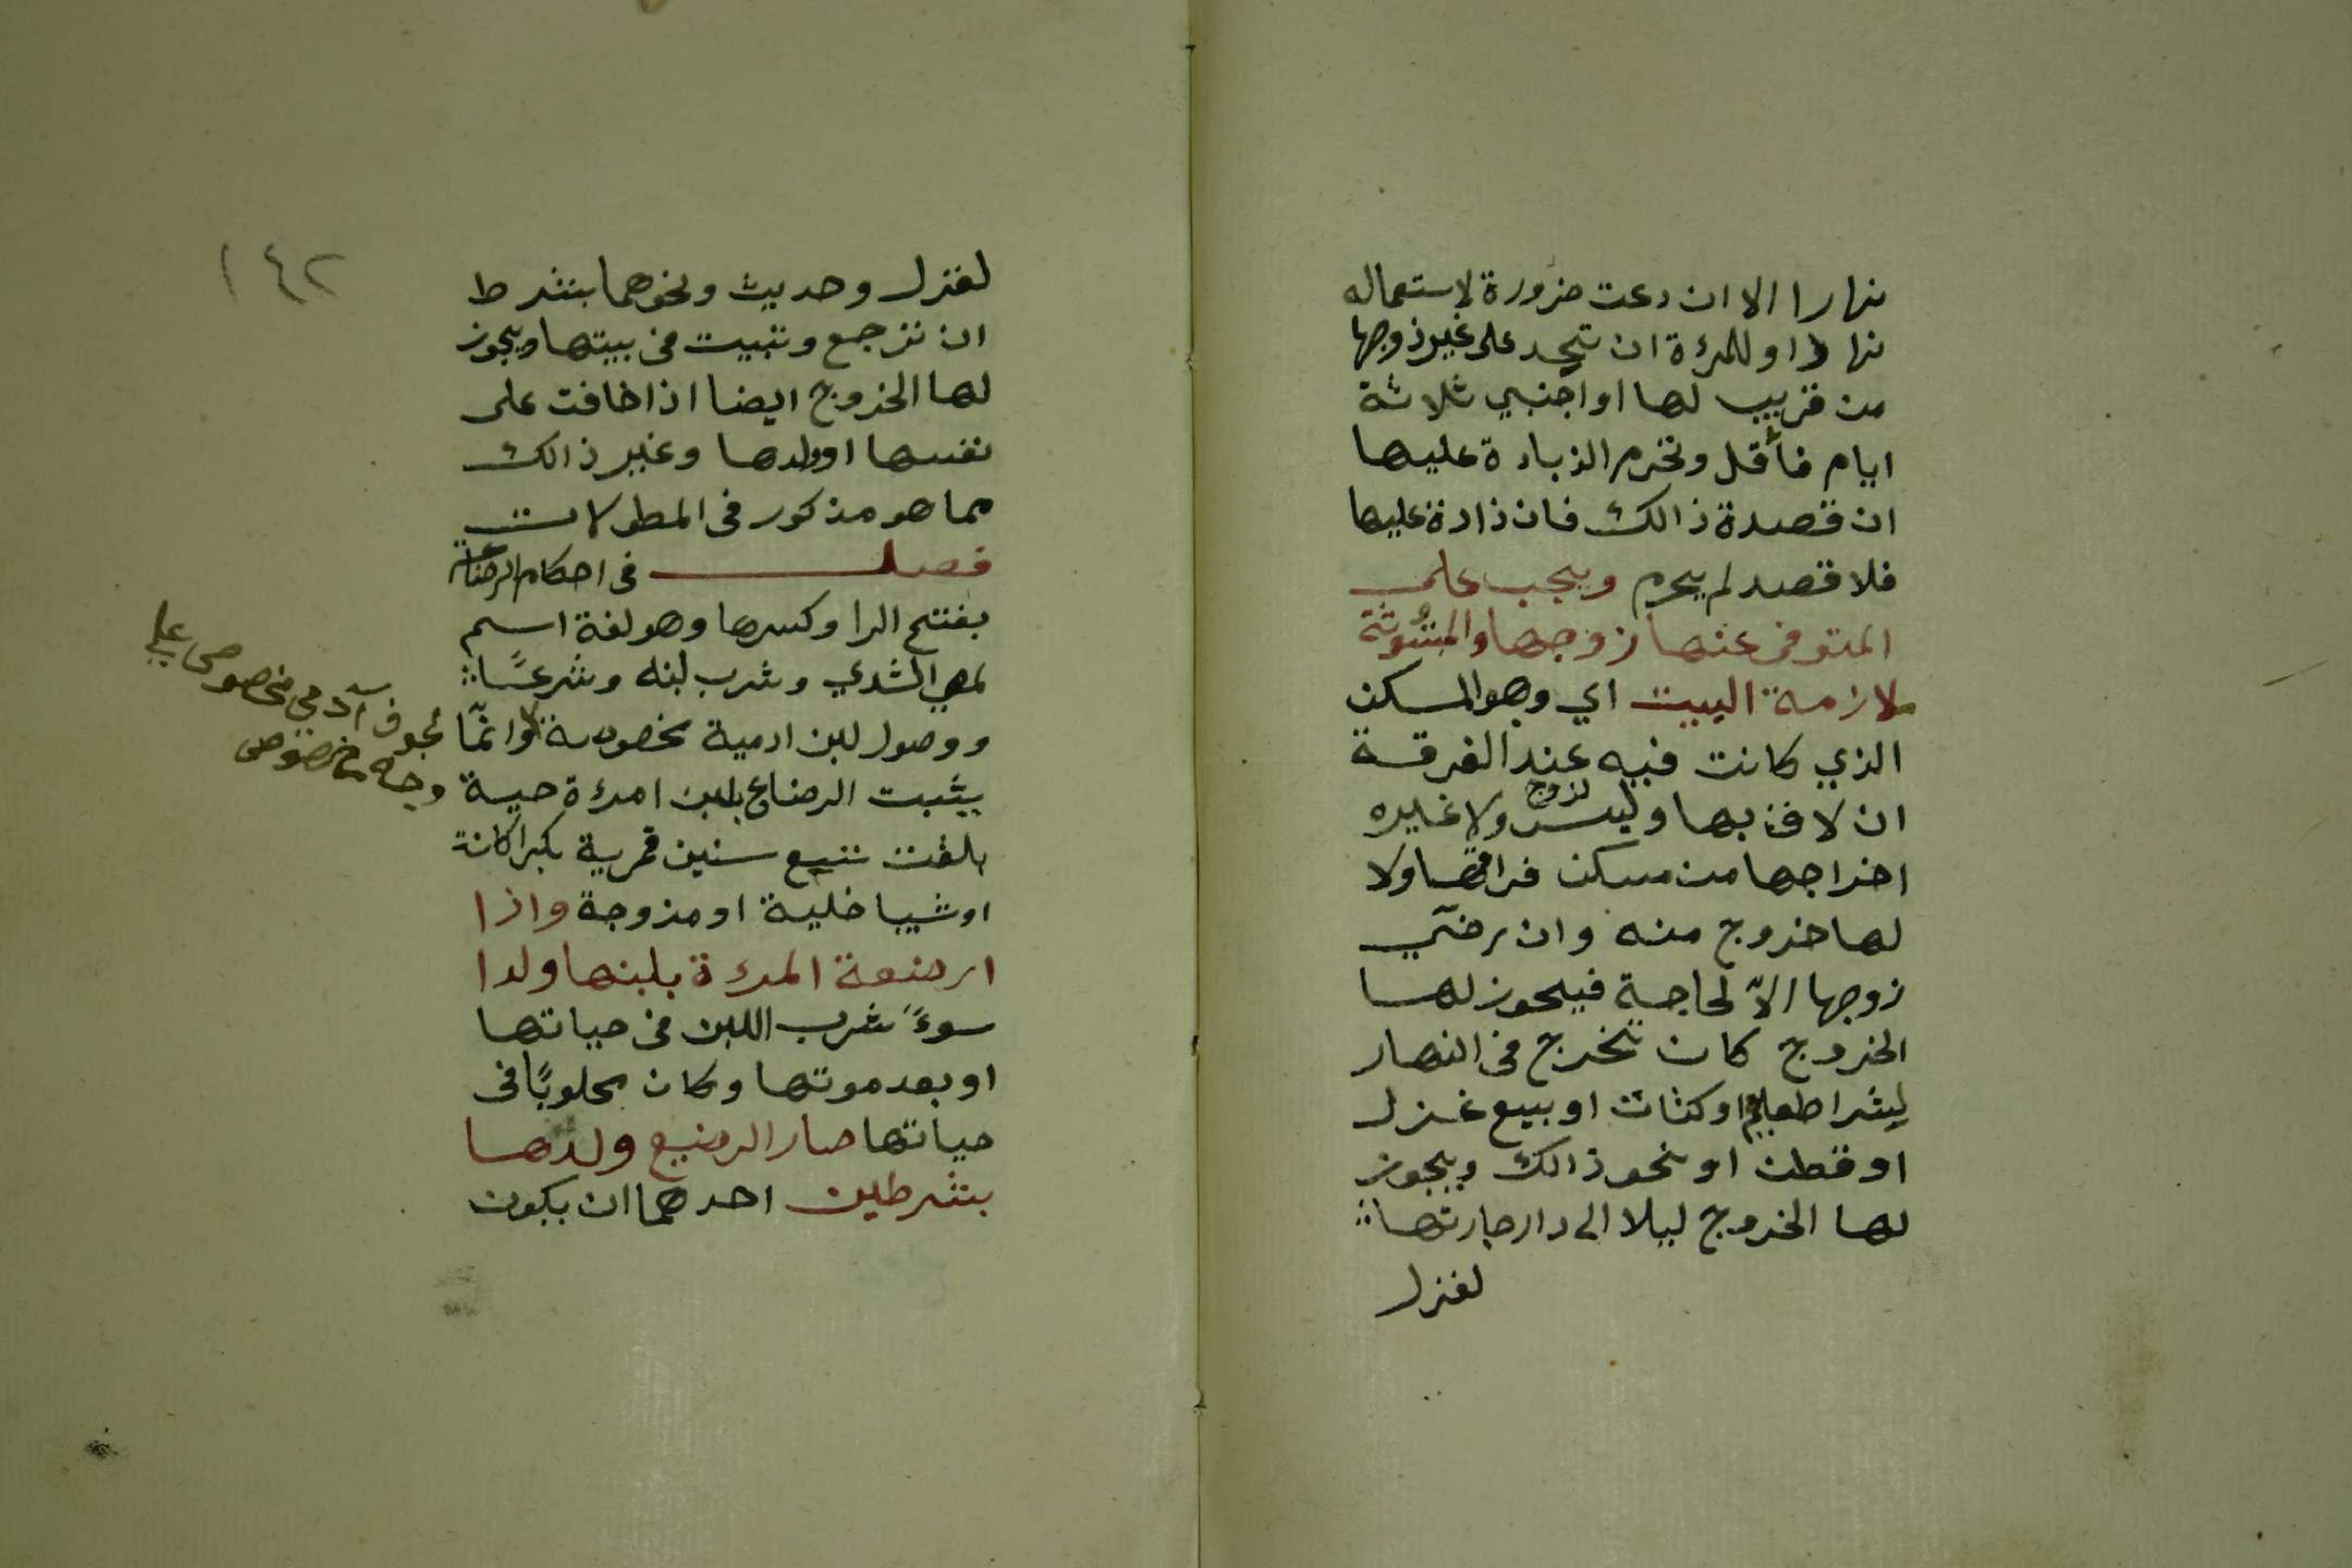 نهارا الا ان دعت ضرورة لاستعماله
نهارا وللمرءة ان تحد على غير زوجها
من قريب لها او اجنبي ثلاثة
ايام فأقل وتحرم الزيادة عليها
ان قصدة ذالك فان زادة عليها
فلا قصد لم يحرم ويجب على
المتوفى عنها زوجها والمبتوتة
ملازمة البيت اي وهو المسكن
الذي كانت فيه عند الفرقة
ان لاق بها وليس لزوج ولا غيره
اخراجها من مسكن فراقها ولا
لها خروج منه وان رضي
زوجها الاّ لحاجة فيجوز لها
الخروج كان تخرج في النهار
لشرا طعام او كتان او بيع غزل
او قطن او نحو ذالك ويجوز
لها الخروج ليلا الى دار جارتها
لغزل
١٤٢
لغزل وحديث ونحوهما بشرط
ان ترجع وتبيت في بيتها ويجوز
لها الخروج ايضا اذا خافت على
نفسها او ولدها وغير ذالك
مما هو مذكور في المطولات
فصل في احكام الرضاعة
بفتح الرا وكسرها وهو لغة اسم
لمص الثدي وشرب لبنه وشرعًا
ووصول لبن ادمية مخصوصة وانمّا
لجوف آدمي مخصوص على
وجه مخصوص
يثبت الرضاع بلبن امرءة حية
بلغت تسع سنين قمرية بكرا كانة
او ثيبا خلية او مزوجة واذا
ارضعة المرءة بلبنها ولدا
سوءً شرب اللبن في حياتها
او بعد موتها وكان محلوبًا في
حياتها صار الرضيع ولدها
بشرطين احدهما ان يكون